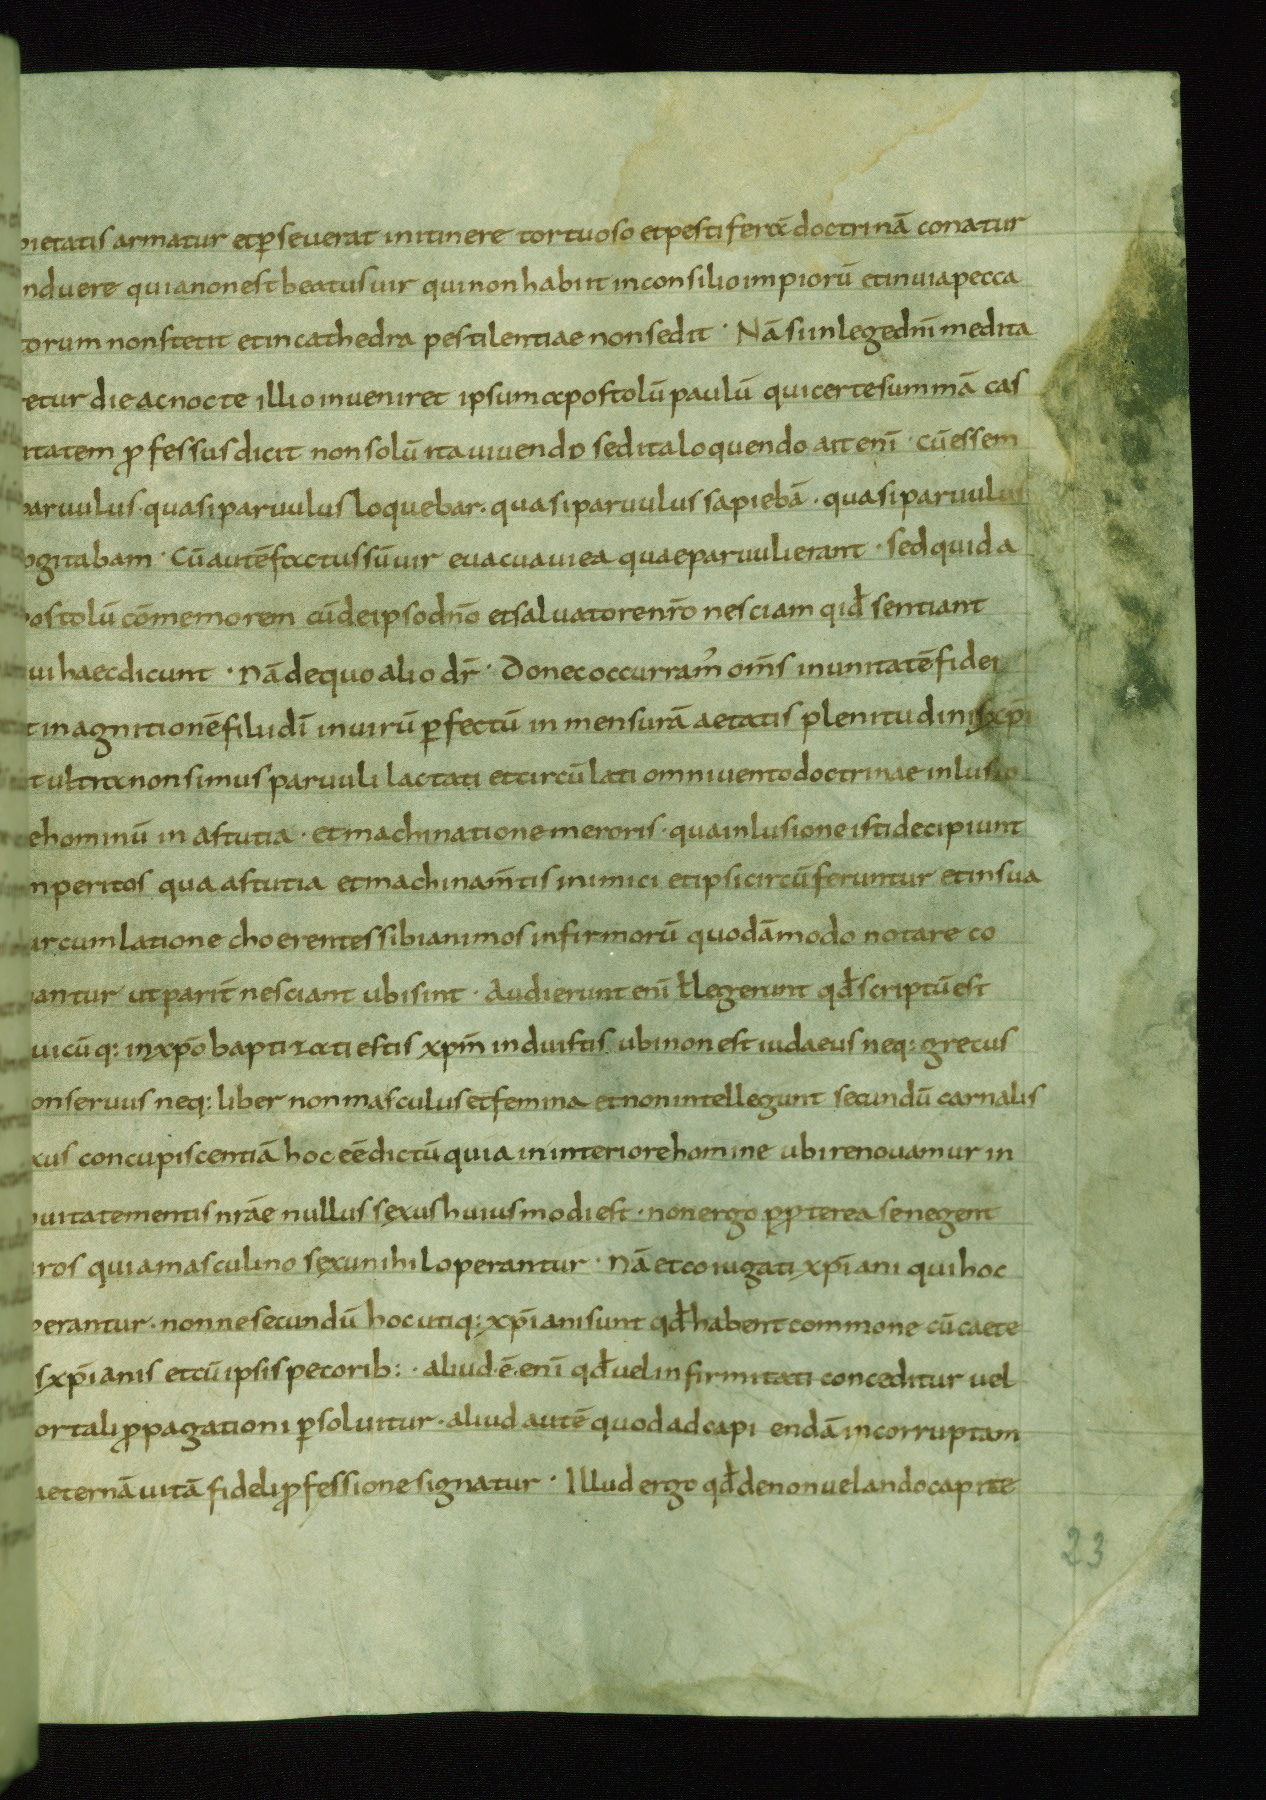 pietatis armatur et ꝑseuerat in itinere tortuoso et pestifera doctrinā conatur
nduere quia non est beatus uir qui non habiit in consilio impiorū et in uia pecca
torum non stetit et in cathedra pestilentiae non sedit · Nā si in lege dn̄i medita
retur die ac nocte illio inueniret ipsum apostolū paulū qui certe summā cas
titatem ꝓfessus dicit non solū ita uiuendo sed ita loquendo ait enī · cū essem
paruulus · quasi paruulus loquebar · quasi paruulus sapiebā · quasi paruulus
ogitabam · Cū autē factus sū uir euacuaui ea quae paruuli erant · sed quid a
postolū cōmemorem cū de ipso dn̄o et saluatore nr̄o nesciam qid̄ sentiant
ui haec dicunt · Nā de quo alio dr̄ · Donec occurram᷒ om̄s in unitatē fidei
t in agnitionē filii dī in uirū ꝑfectū in mensurā aetatis plenitudinis xp̄i
t ultra non simus paruuli lactati et circūlati omni uento doctrinae inlusio
e hominū in astutia · et machinatione meroris · qua inlusione isti decipiunt
nperitos qua astutia et machinam̄tis inimici et ipsi circūferuntur et in sua
circumlatione choerentes sibi animos infirmorū quodāmodo notare co
nantur ut parit̄ nesciant ubi sint · Audierunt enī ł legerunt qd̄ scriptū est
uicūq: in xp̄o baptizati estis xpm̄ induistis ubi non est iudaeus neq: grecus
on seruus neq: liber non masculus et femina et non intellegunt secundū carnalis
xus concupiscentiā hoc eē dictū quia in interiore homine ubi renouamur in
ouitate mentis nr̄ae nullus sexus huiusmodi est · non ergo ꝓpterea se negent
iros quia masculino sexu nihil operantur · Nā et coiugati xp̄iani qui hoc
perantur · nonne secundū hoc utiq: xp̄iani sunt qd̄ habent commone cū caete
s xp̄ianis et cū ipsis pecorib: · aliud ·ē· enī qd̄ uel infirmitati conceditur uel
ortali ꝓpagationi ꝑsoluitur · aliud autē quod ad capi endā incorruptam
aeternā uitā fideli ꝓfessione signatur · Illud ergo qd̄ de non uelando capite
23